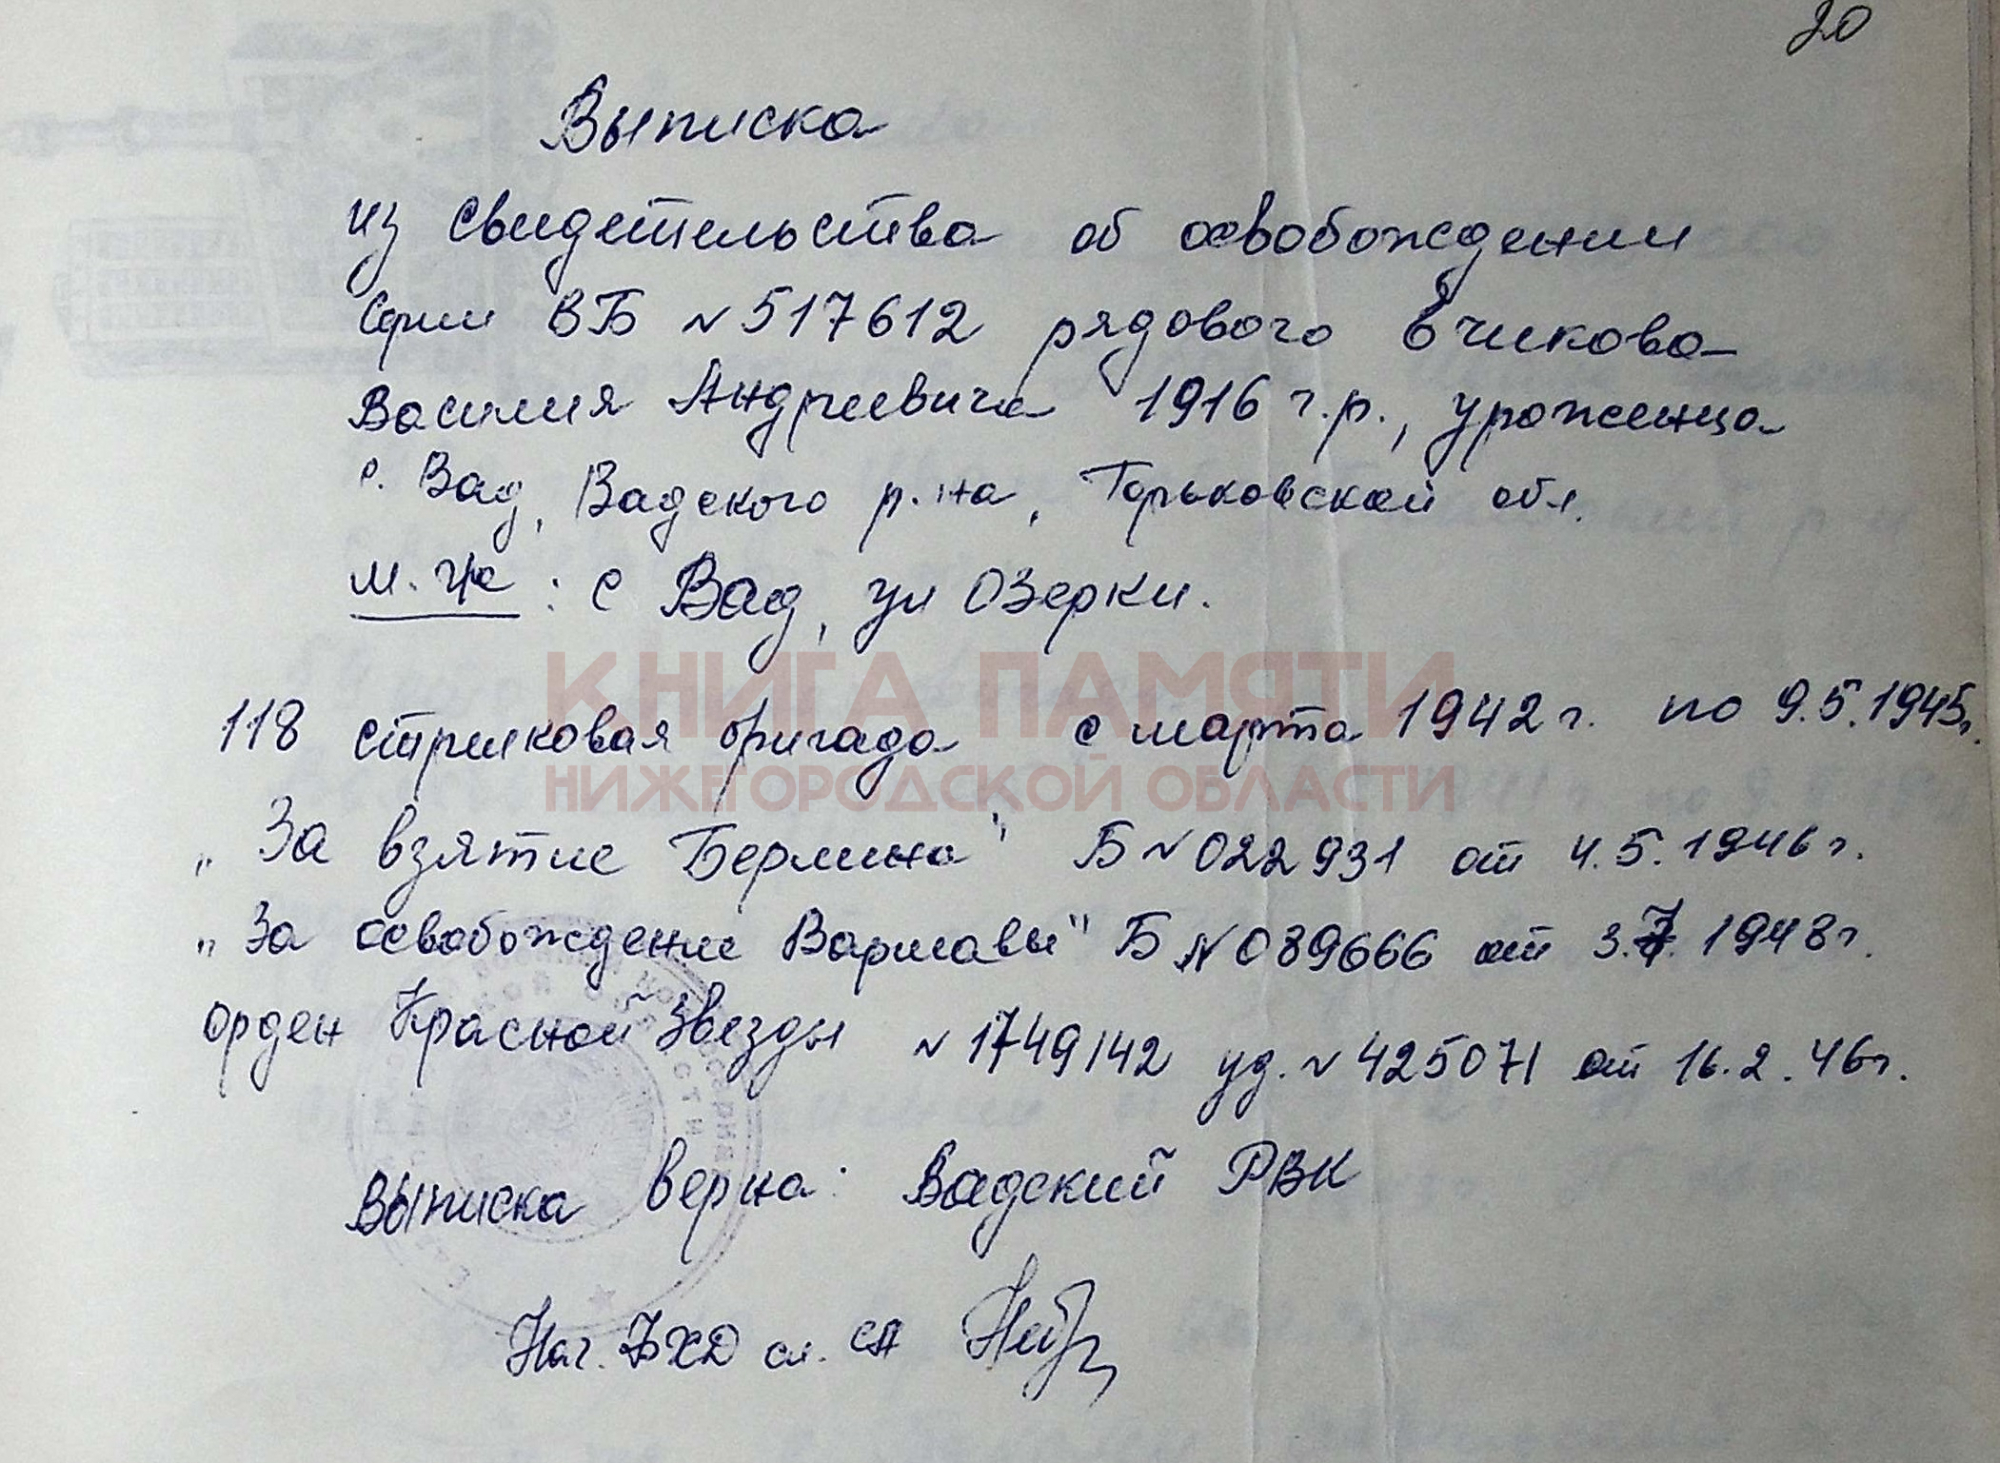 20
Выписка
из свидетельства об освобождении
Серии ВБ №517612 рядового Очикова
Василия Андреевича 1916 г.р., уроженца
с. Вад, Вадского р.на, Горьковской обл.
м. ж : с Вад, ул Озерки.
КНИГА ПАМЯТИ
118 стрелковая бригада с марта 1942 г. по 9.5.1945г.
НИЖЕГОРОДСКОЙ ОБЛАСТИ
„За взятие Берлина" Б №022931 от 4.5.1946 г.
„За освобождение Варшавы" Б №089666 от 3.7.1948г.
орден Красной Звезды №1749142 уд. №425071 от 16.2.46г.
Выписка верна: Вадский РВК
Нач. БХД